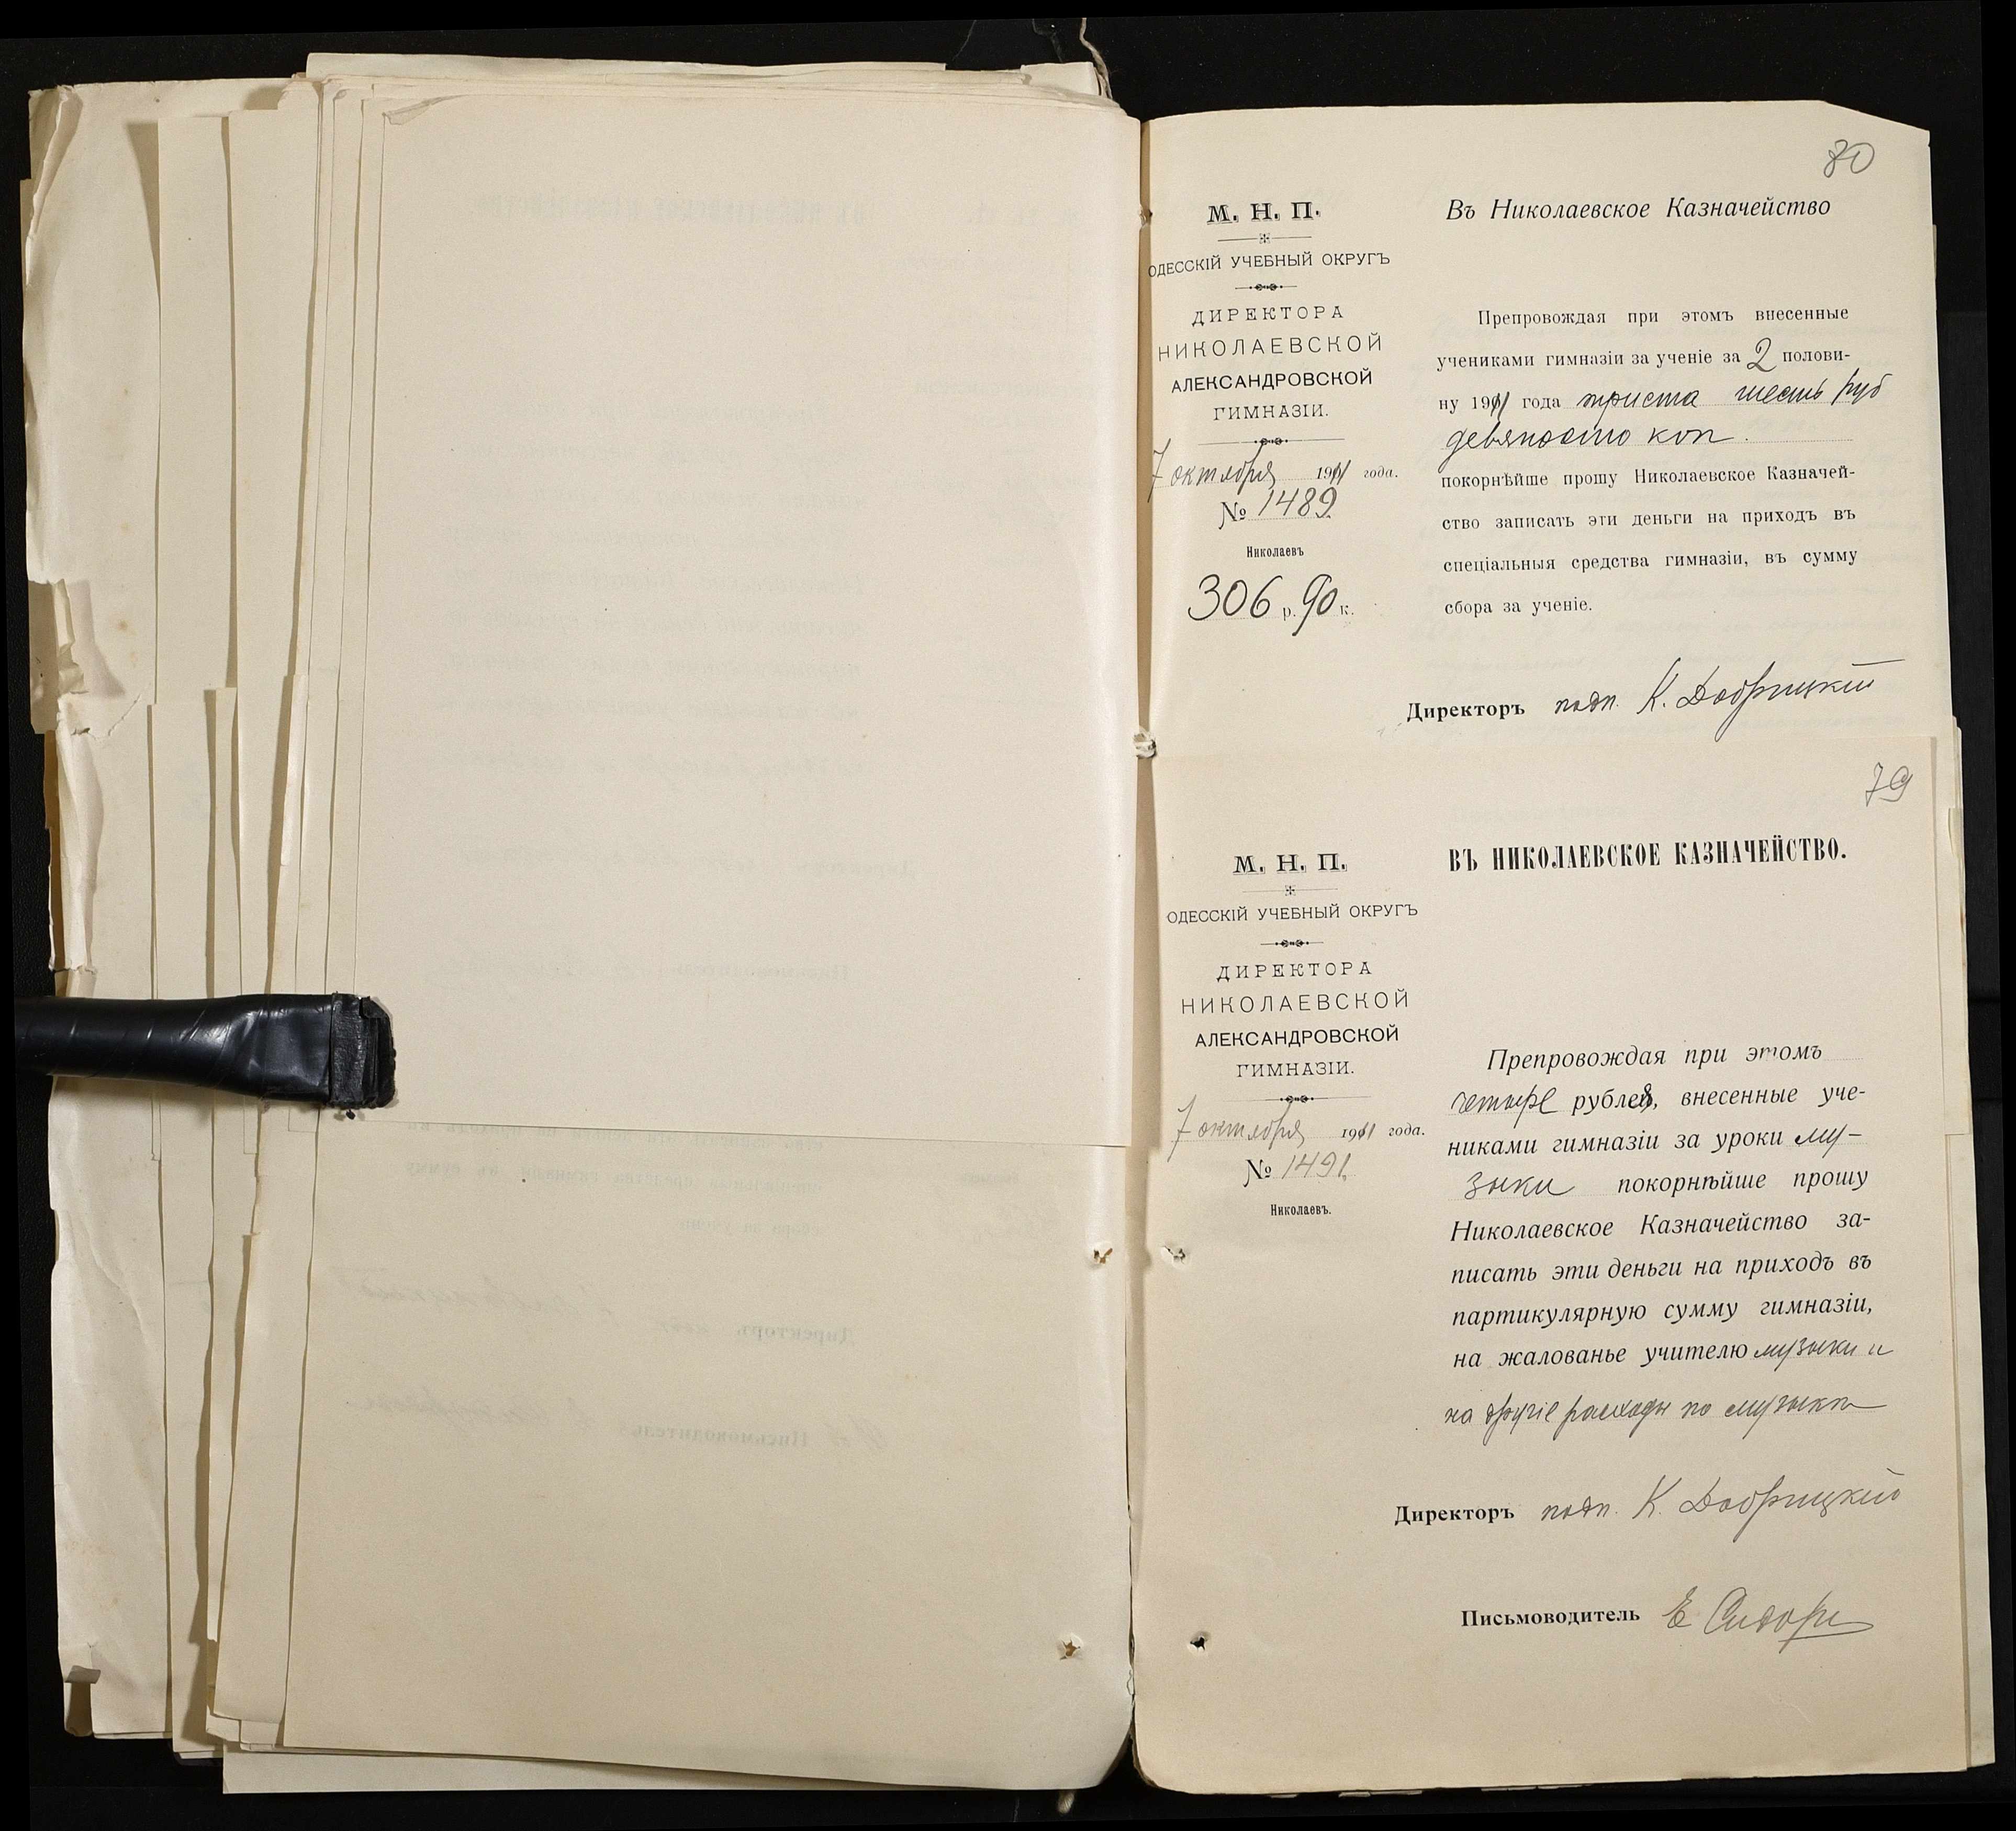 80
М. Н. П.
ОДЕССКІЙ УЧЕБНЫЙ ОКРУГЪ
ДИРЕКТОРА
НИКОЛАЕВСКОЙ
АЛЕКСАНДРОВСКОЙ
ГИМНАЗІИ.
7 октября 1911 года.
№ 1489.
Николаевъ
306 р. 90 к.
Въ Николаевское Казначейство
Препровождая при этомъ внесенные
учениками гимназіи за ученіе за 2 полови-
ну 1911 года триста шесть руб
девяносто коп.
покорнѣйше прошу Николаевское Казначей-
ство записать эти деньги на приходъ въ
спеціальныя средства гимназіи, въ сумму
сбора за ученіе.
Директоръ подп. К. Добрицкій
79
М. Н. П.
ОДЕССКІЙ УЧЕБНЫЙ ОКРУГЪ
ДИРЕКТОРА
НИКОЛАЕВСКОЙ
АЛЕКСАНДРОВСКОЙ
ГИМНАЗІИ.
7 октября 1911 года.
№ 1491.
Николаевъ.
ВЪ НИКОЛАЕВСКОЕ КАЗНАЧЕЙСТВО.
Препровождая при этомъ
четыре рубля, внесенные уче-
никами гимназіи за уроки му-
зыки покорнѣйше прошу
Николаевское Казначейство за-
писать эти деньги на приходъ въ
партикулярную сумму гимназіи,
на жалованье учителю музыки и
на другіе расходы по музыкѣ
Директоръ подп. К. Добрицкій
Письмоводитель Е